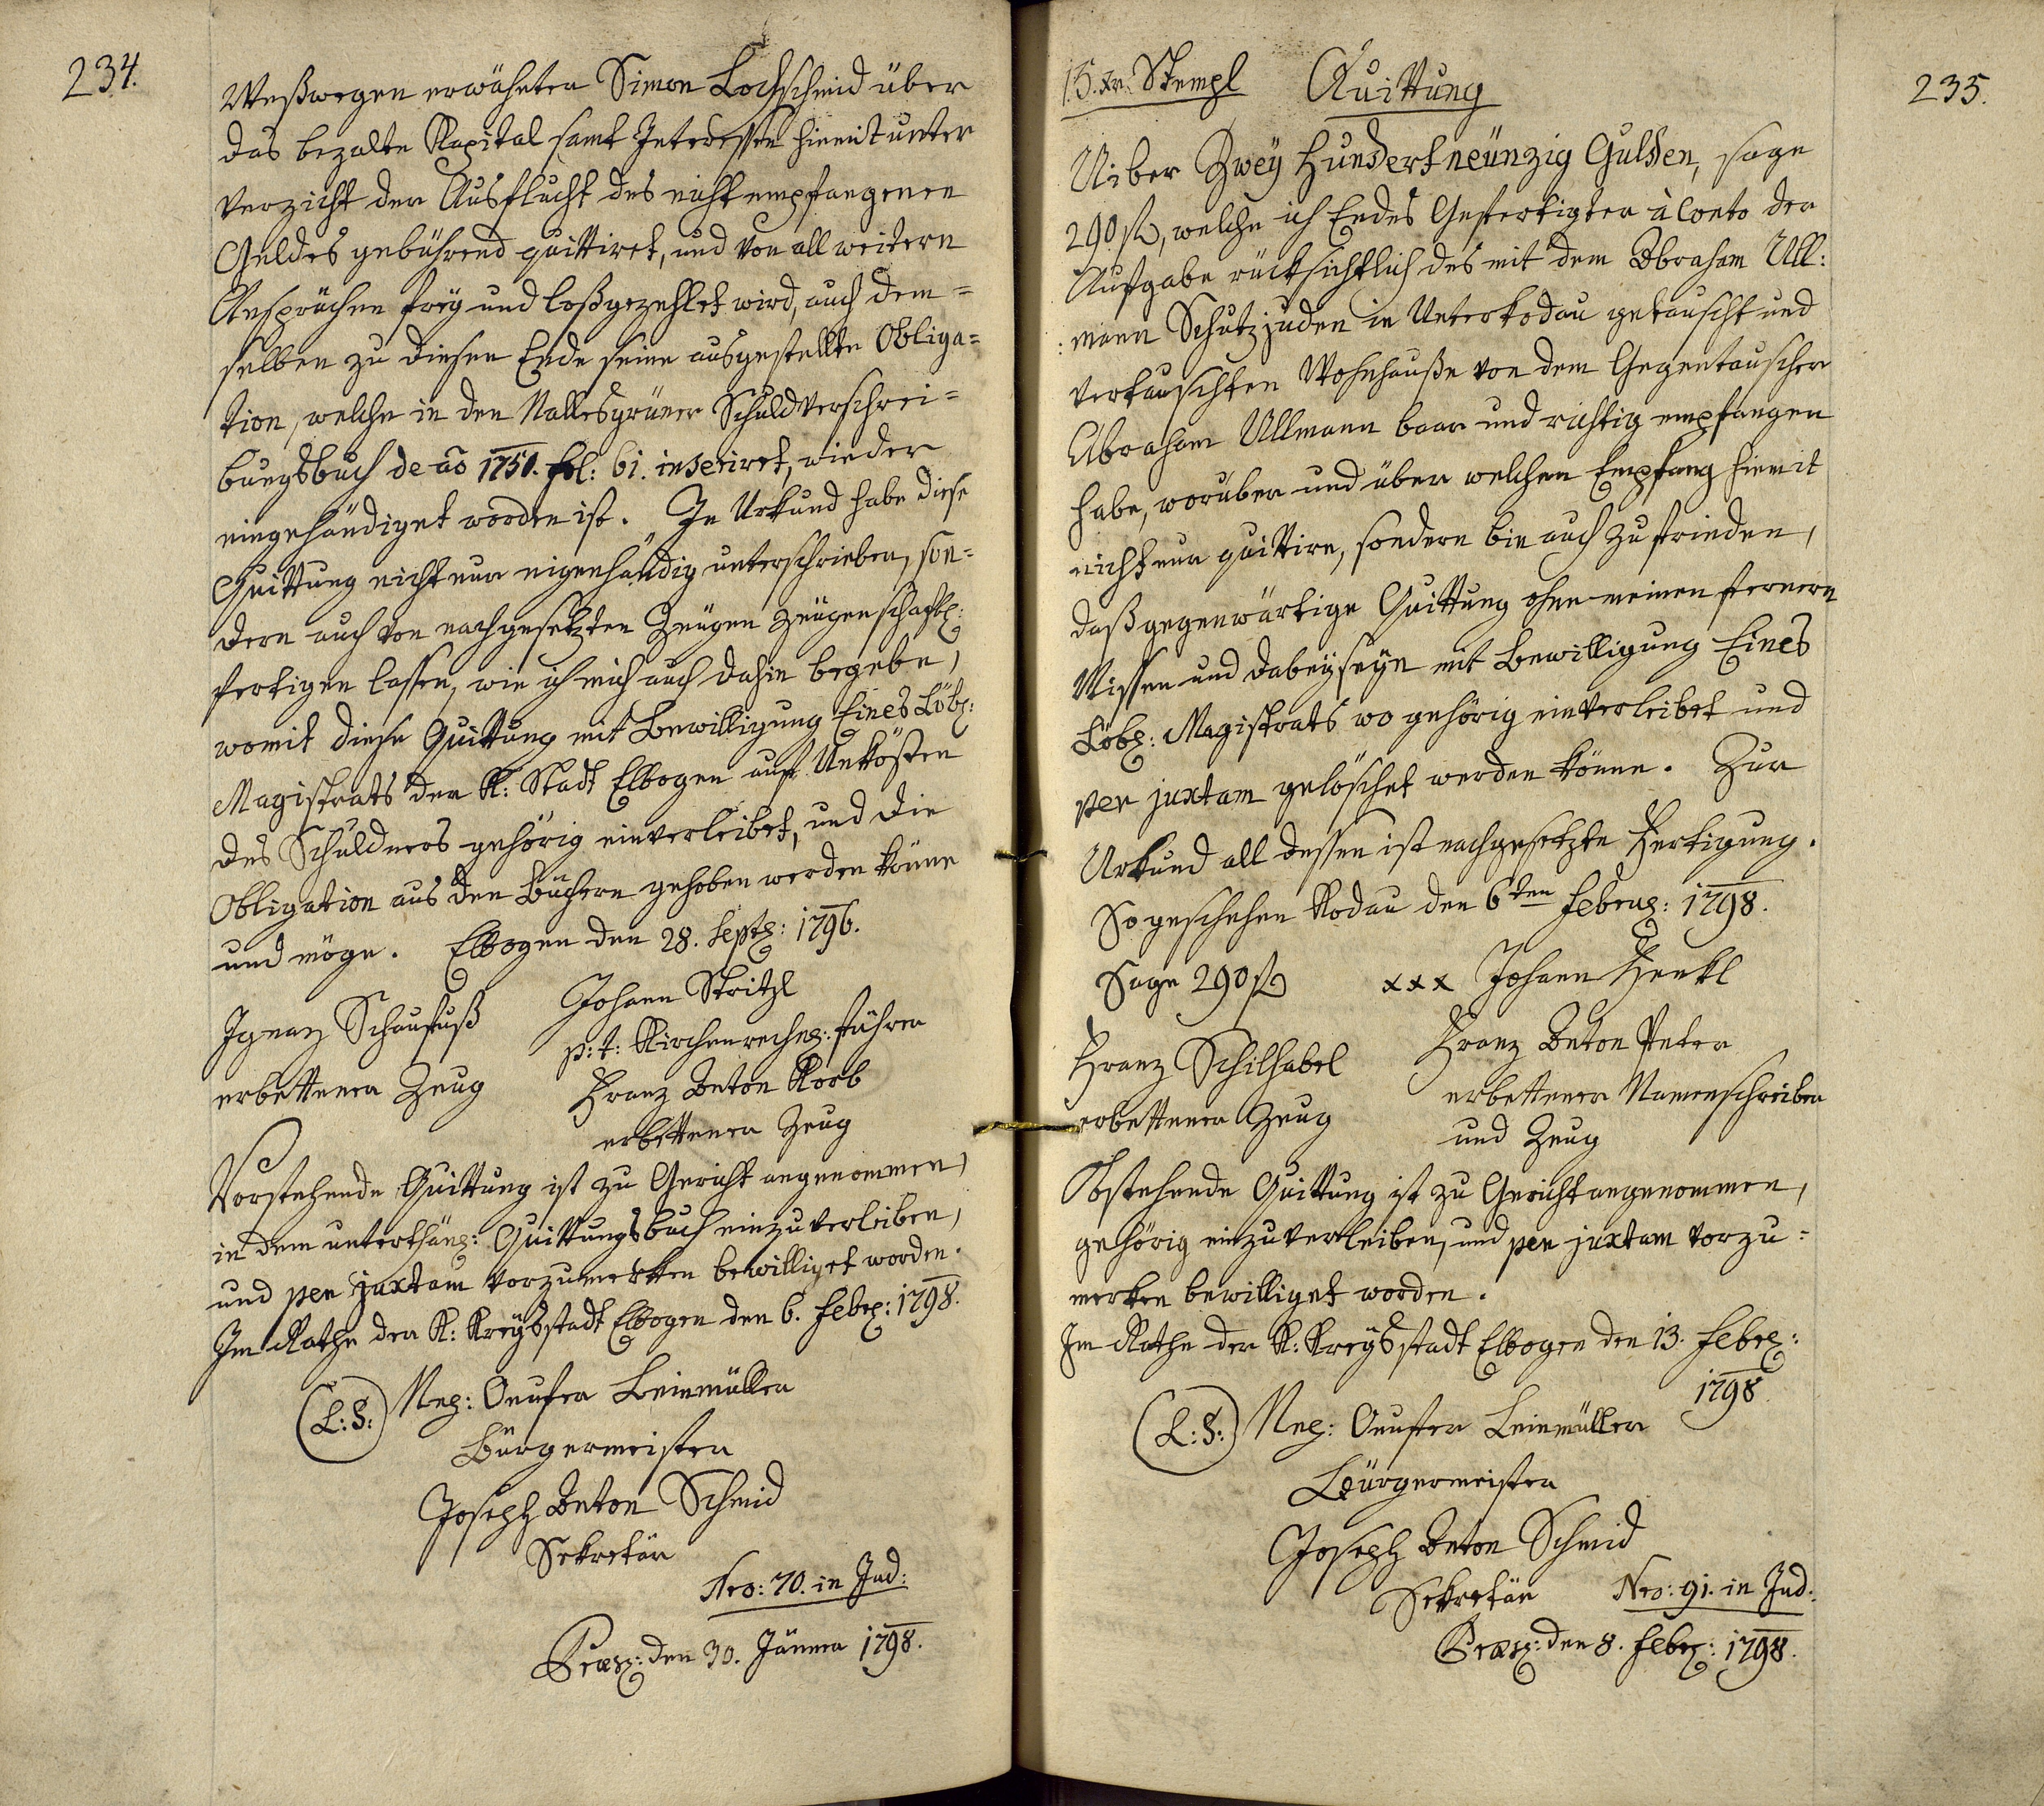 234.
Weßwegen erwähnter Simon Lochschmid über
das bezalte Kapital samt Interessen hiemit unter
Verzicht der Ausflucht des nicht empfangenen
Geldes gebührend quittiret, und von all weitern
Ansprüchen frey und loßgezehlet wird, auch dem=
selben zu diesen Ende seine ausgestellte Obliga=
tion, welche in den Nallesgrüner Schuldverschrei=
bungsbuch de aõ 1750. fol: 61. inseriret, wieder
eingehändiget worden ist. In Urkund habe diese
Quittung nicht nur eigenhändig unterschrieben, son=
dern auch von nachgesetzten Zeugen Zeugenschaftl:
fertigen lassen, wie ich mich auch dahin begebe,
womit diese Quittung mit Bewilligung Eines Löbl:
Magistrats der K: Stadt Elbogen auf Unkösten
des Schuldners gehörig einverleibet, und die
Obligation aus den Büchern gehoben werden könne
und möge. Elbogen den 28. Septr: 1796.
Johann Stritzl
Ignaz Schaufuß
p: t: Kirchenrechng: führer
erbettener Zeug
Franz Anton Korb
erbettener Zeug
Vorstehende Quittung ist zu Gericht angenommen,
in dem unterthäng: Quittungsbuch einzuverleiben,
und per juxtam vorzumerken bewilliget worden.
Im Rathe der K: Kreysstadt Elbogen den 6. Febr: 1798.
(L: S:) Onufer Leinmüller
Bürgermeister
Joseph Anton Schmid
Sekretär
Nro: 70. in Jud:
Præs: den 30. Jänner 1798.
15. xr. Stempl Quittung
235.
Uiber Zwey Hundert neünzig Gulden, sage
290 fl, welche ich Endes Gefertigter à Conto der
Aufgabe rücksichtlich des mit dem Abraham Ull:
:mann Schutzjuden in Unterkodau getauscht und
vertauschten Wohnhauße von dem Gegentauscher
Abraham Ullmann baar und richtig empfangen
habe, worüber und über welchen Empfang hiemit
nicht nur quittire, sondern bin auch zufrieden,
daß gegenwärtige Quittung ohne meinen fernern
Wissen und dabeyseyn mit Bewilligung Eines
Löbl: Magistrats wo gehörig einverleibet und
per juxtam gelöschet werden könne. Zur
Urkund all dessen ist nachgesetzte Fertigung.
So geschehen Kodau den 6ten Februar: 1798.
Sage 290 fl xxx Johann Henkl
Franz Anton Peter
Franz Schilhabel
erbettener Namenschreiber
erbettener Zeug
und Zeug
Obstehende Quittung ist zu Gericht angenommen,
gehörig einzuverleiben, und per juxtam vorzu=
merken bewilliget worden.
Im Rathe der K: Kreysstadt Elbogen den 13. Febr:
1798.
(L: S:) Onufer Leinmüller
Bürgermeister
Joseph Anton Schmid
Sekretär Nro: 91. in Jud:
Præs: den 8. Febr: 1798.